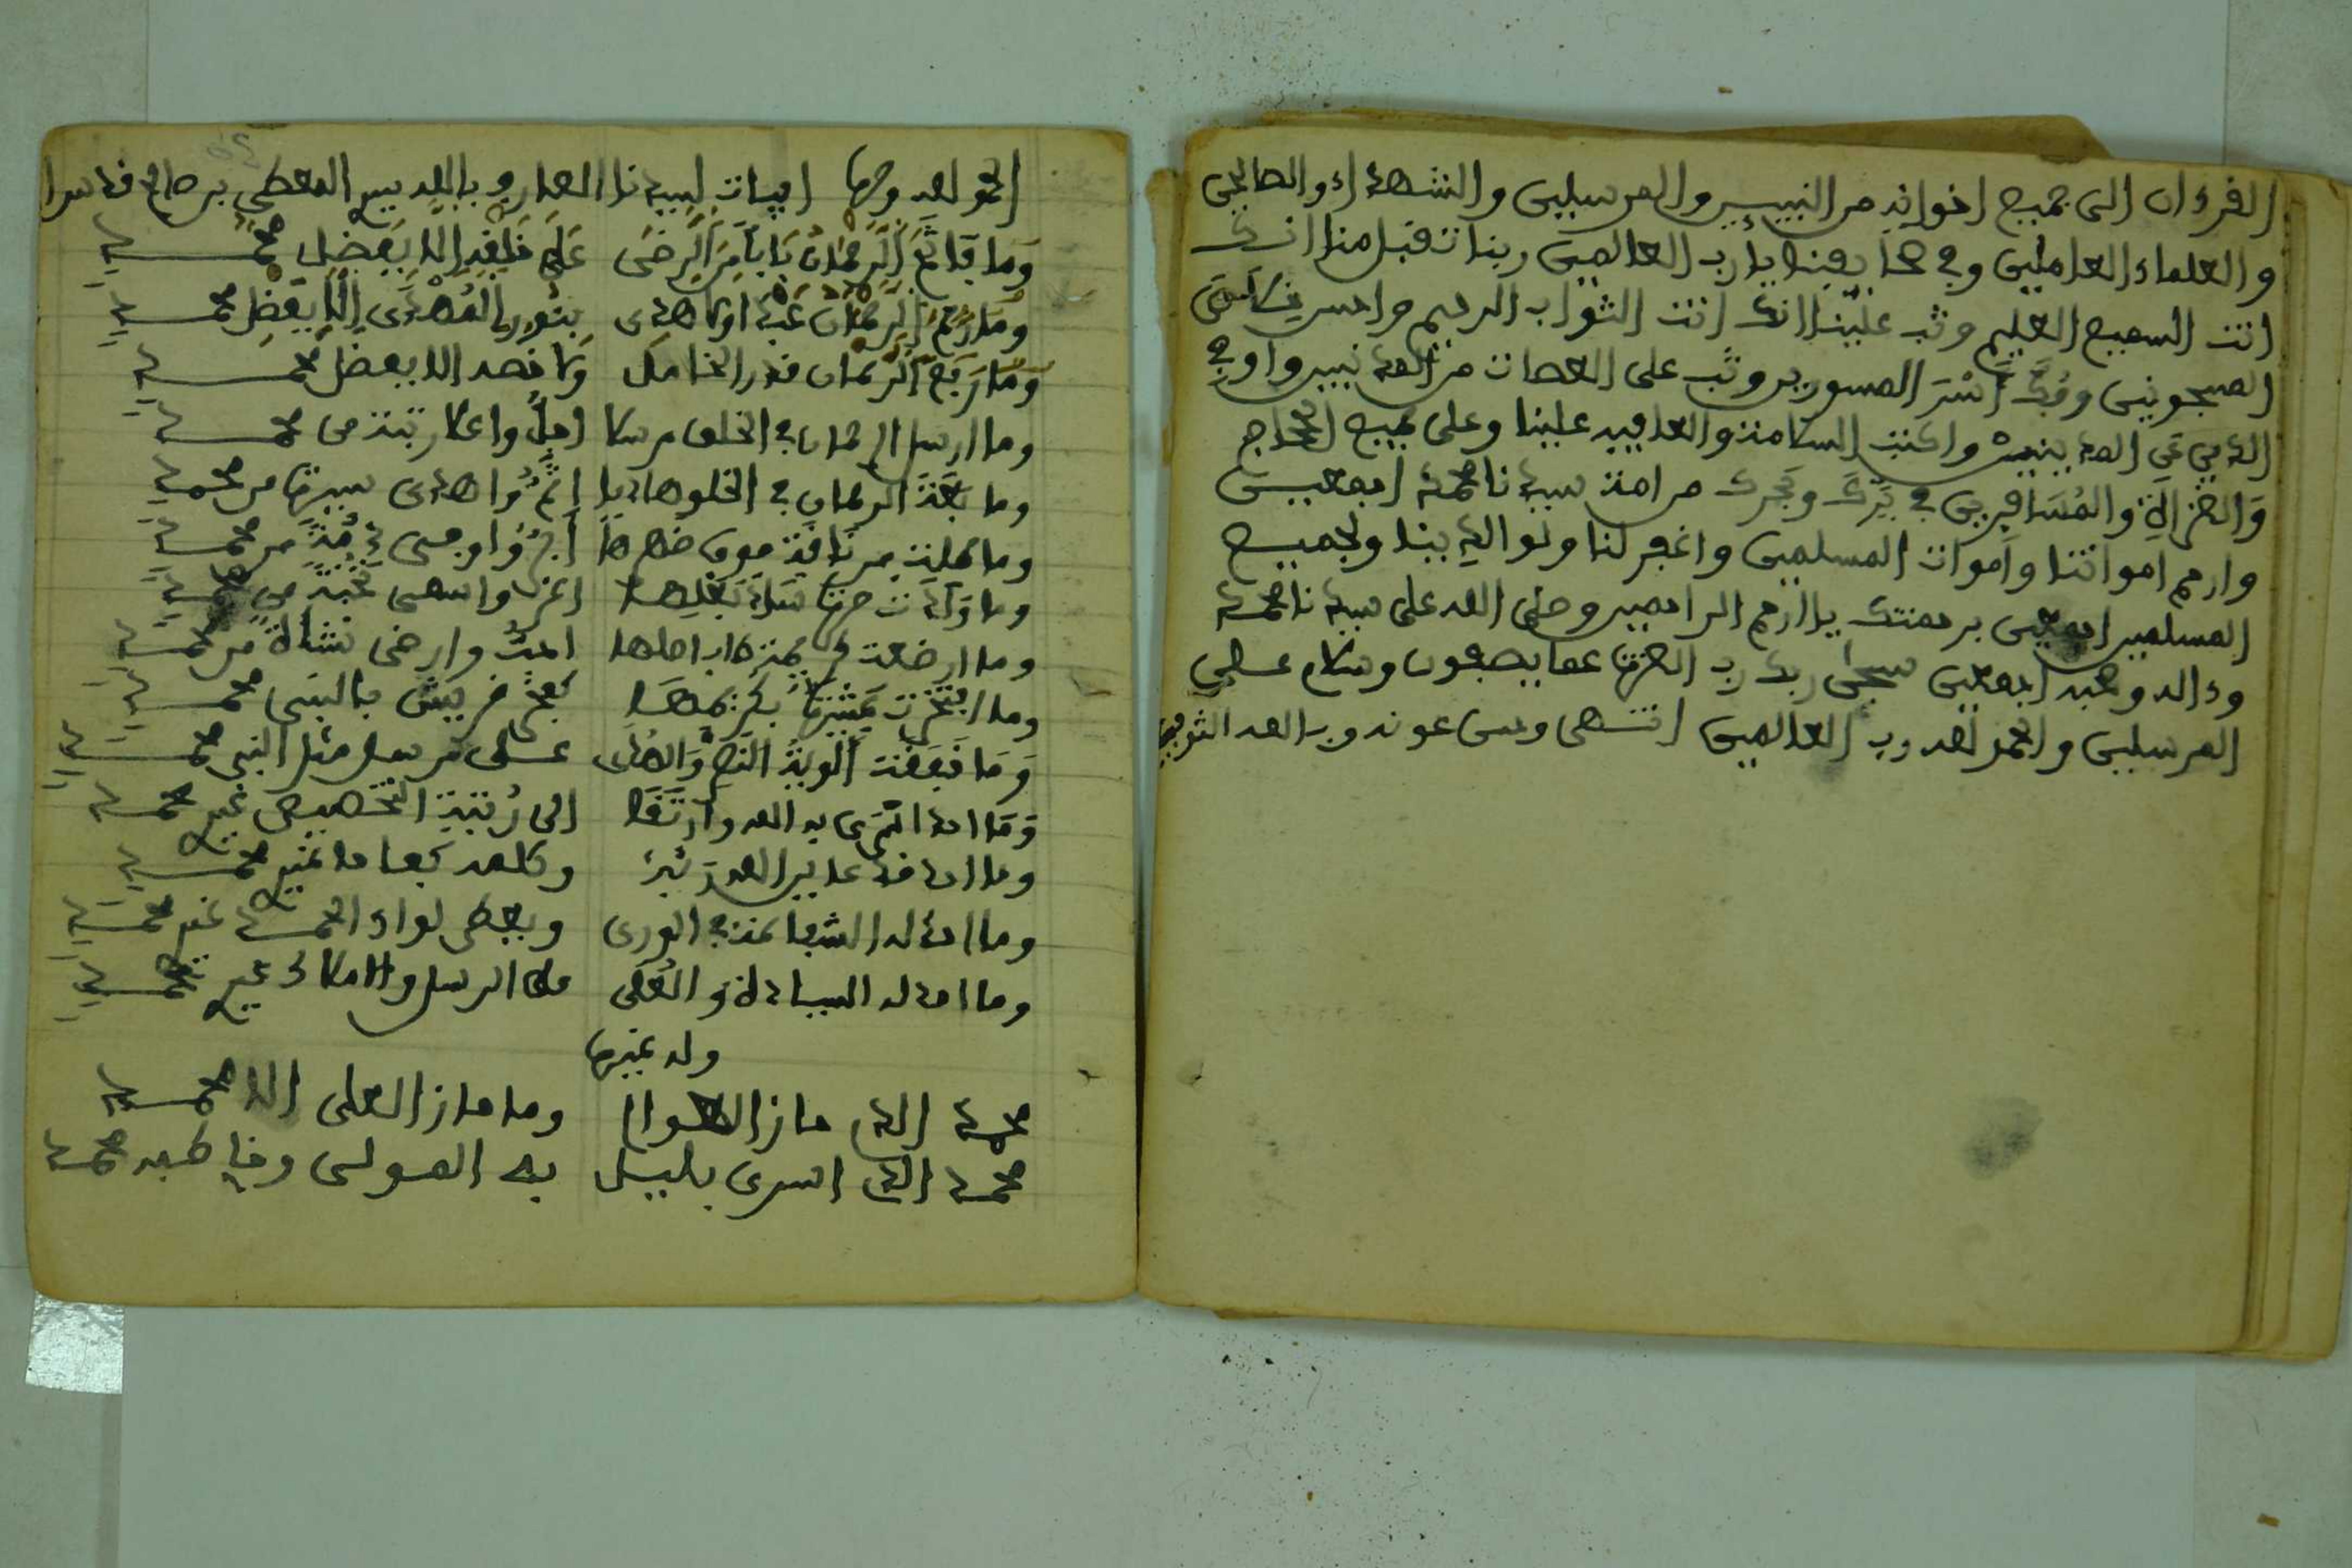 القرءان الى جميع اخوانه من النبيين والمرسلين والشهداء والصالحين
والعلماء العاملين وفي صحايفنا يا رب العالمين ربنا تقبل منا انك
انت السميع العليم وتب علينا انك انت التواب الرحيم
المسجونين وفك اسر الماسورين وتب على العصات من المذنبين واوفي
الدين عن المدينين واكتب السلامة والعافية علينا وعلى جميع الحجاج
والغزاة والمسافرين في برك وبحرك من امة سيدنا محمد اجمعين
وارحم امواتنا واموات المسلمين واغفر لنا ولوالدينا ولجميع
المسلمين اجمعين برحمتك يا ارحم الراحمين وصلى الله على سيدنا محمد
وءاله وصحبه اجمعين سبحن ربك رب العزة عما يصفون وسلام على
المرسلين والحمد لله رب العالمين انتهى وحسن عونه وبالله التوفيق
الحمد لله وحده ابيات لسيدنا العارف بالله سيد المعطى بن صالح قدس
وَمَا فَاتَحَ الرَّحْمَانُ بَابًا مِنَ الرِّضَى عَلَى خَلْقِهِ إِلَّا بِفَضْلِ محمد
وما رحم الرحمان عبدا ولا هدى بنور الهدى إلا بفضل محمد
وما رفع الرحمان قدر الخامل ولا قصد الا بفضل محمد
وما ارسل الرحمان في الخلق مرسلا اجل واعلا رتبة من محمد
وما بعث الرحمان في الخلق هاديا اتم واهدى سيرة من محمد
وما حملت من ناقة فوق ظهرها ابر واوفى ذمة من محمد
وما ولدت حرة بعلها اعز واسمى نخبة من محمد
وما ارضعت امجد وارضى نشأة من محمد
وما افتخرت بكريمها كفخر قريش بالنبي محمد
وما خفقت ألوية النصر والعلى على مرسل مثل النبي محمد
وما احد اسرى به الله وارتقا الى رتبة التخصيص غير محمد
وما احد قد عاين الله ربه وكلمه كفاحا غير محمد
وما احد له الشفاعة في الورى ويعطى لواء الحمد غير محمد
وما احد له السيادة والعلى على الرسل والاملاك غير محمد
وله غيرها
محمد الذى حاز اللوا وما حاز العلى الا محمد
محمد الذى اسرى بليل به المولى وخاطبه محمد